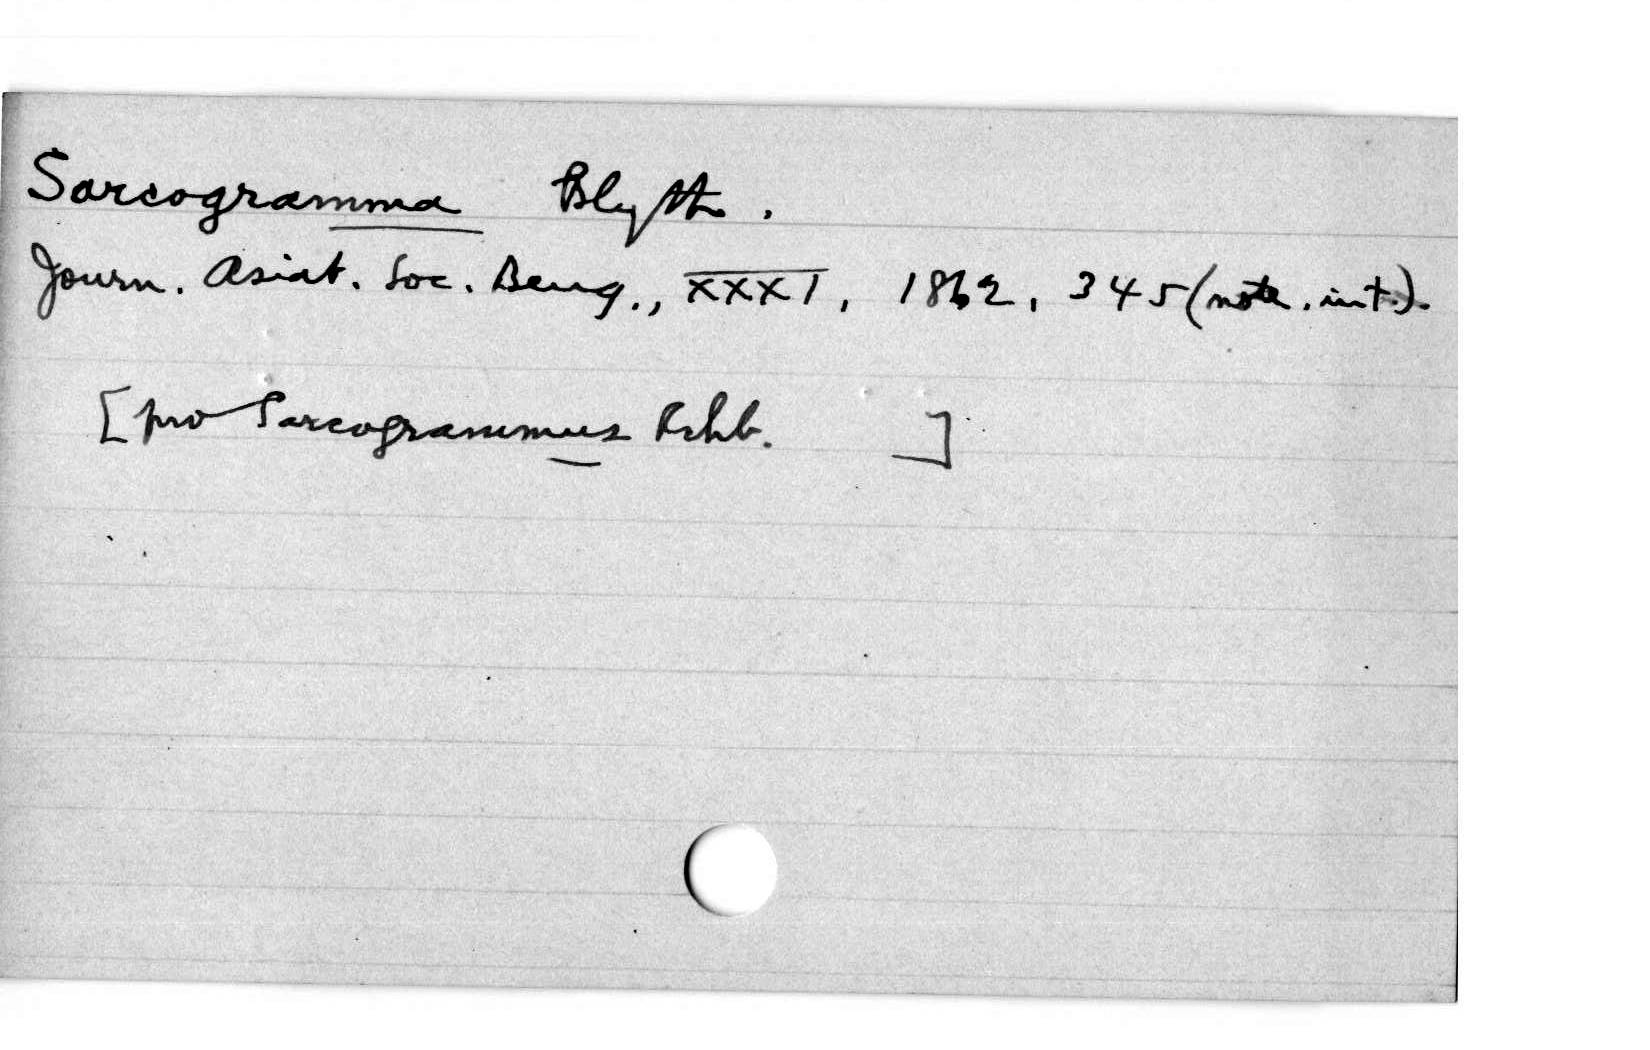 Sarcogramma Blyth.
Journ. Asiat. Soc. Beng., XXXI, 1862, 345 (note. int.).
[pro Sarcogrammus Rchb. ]